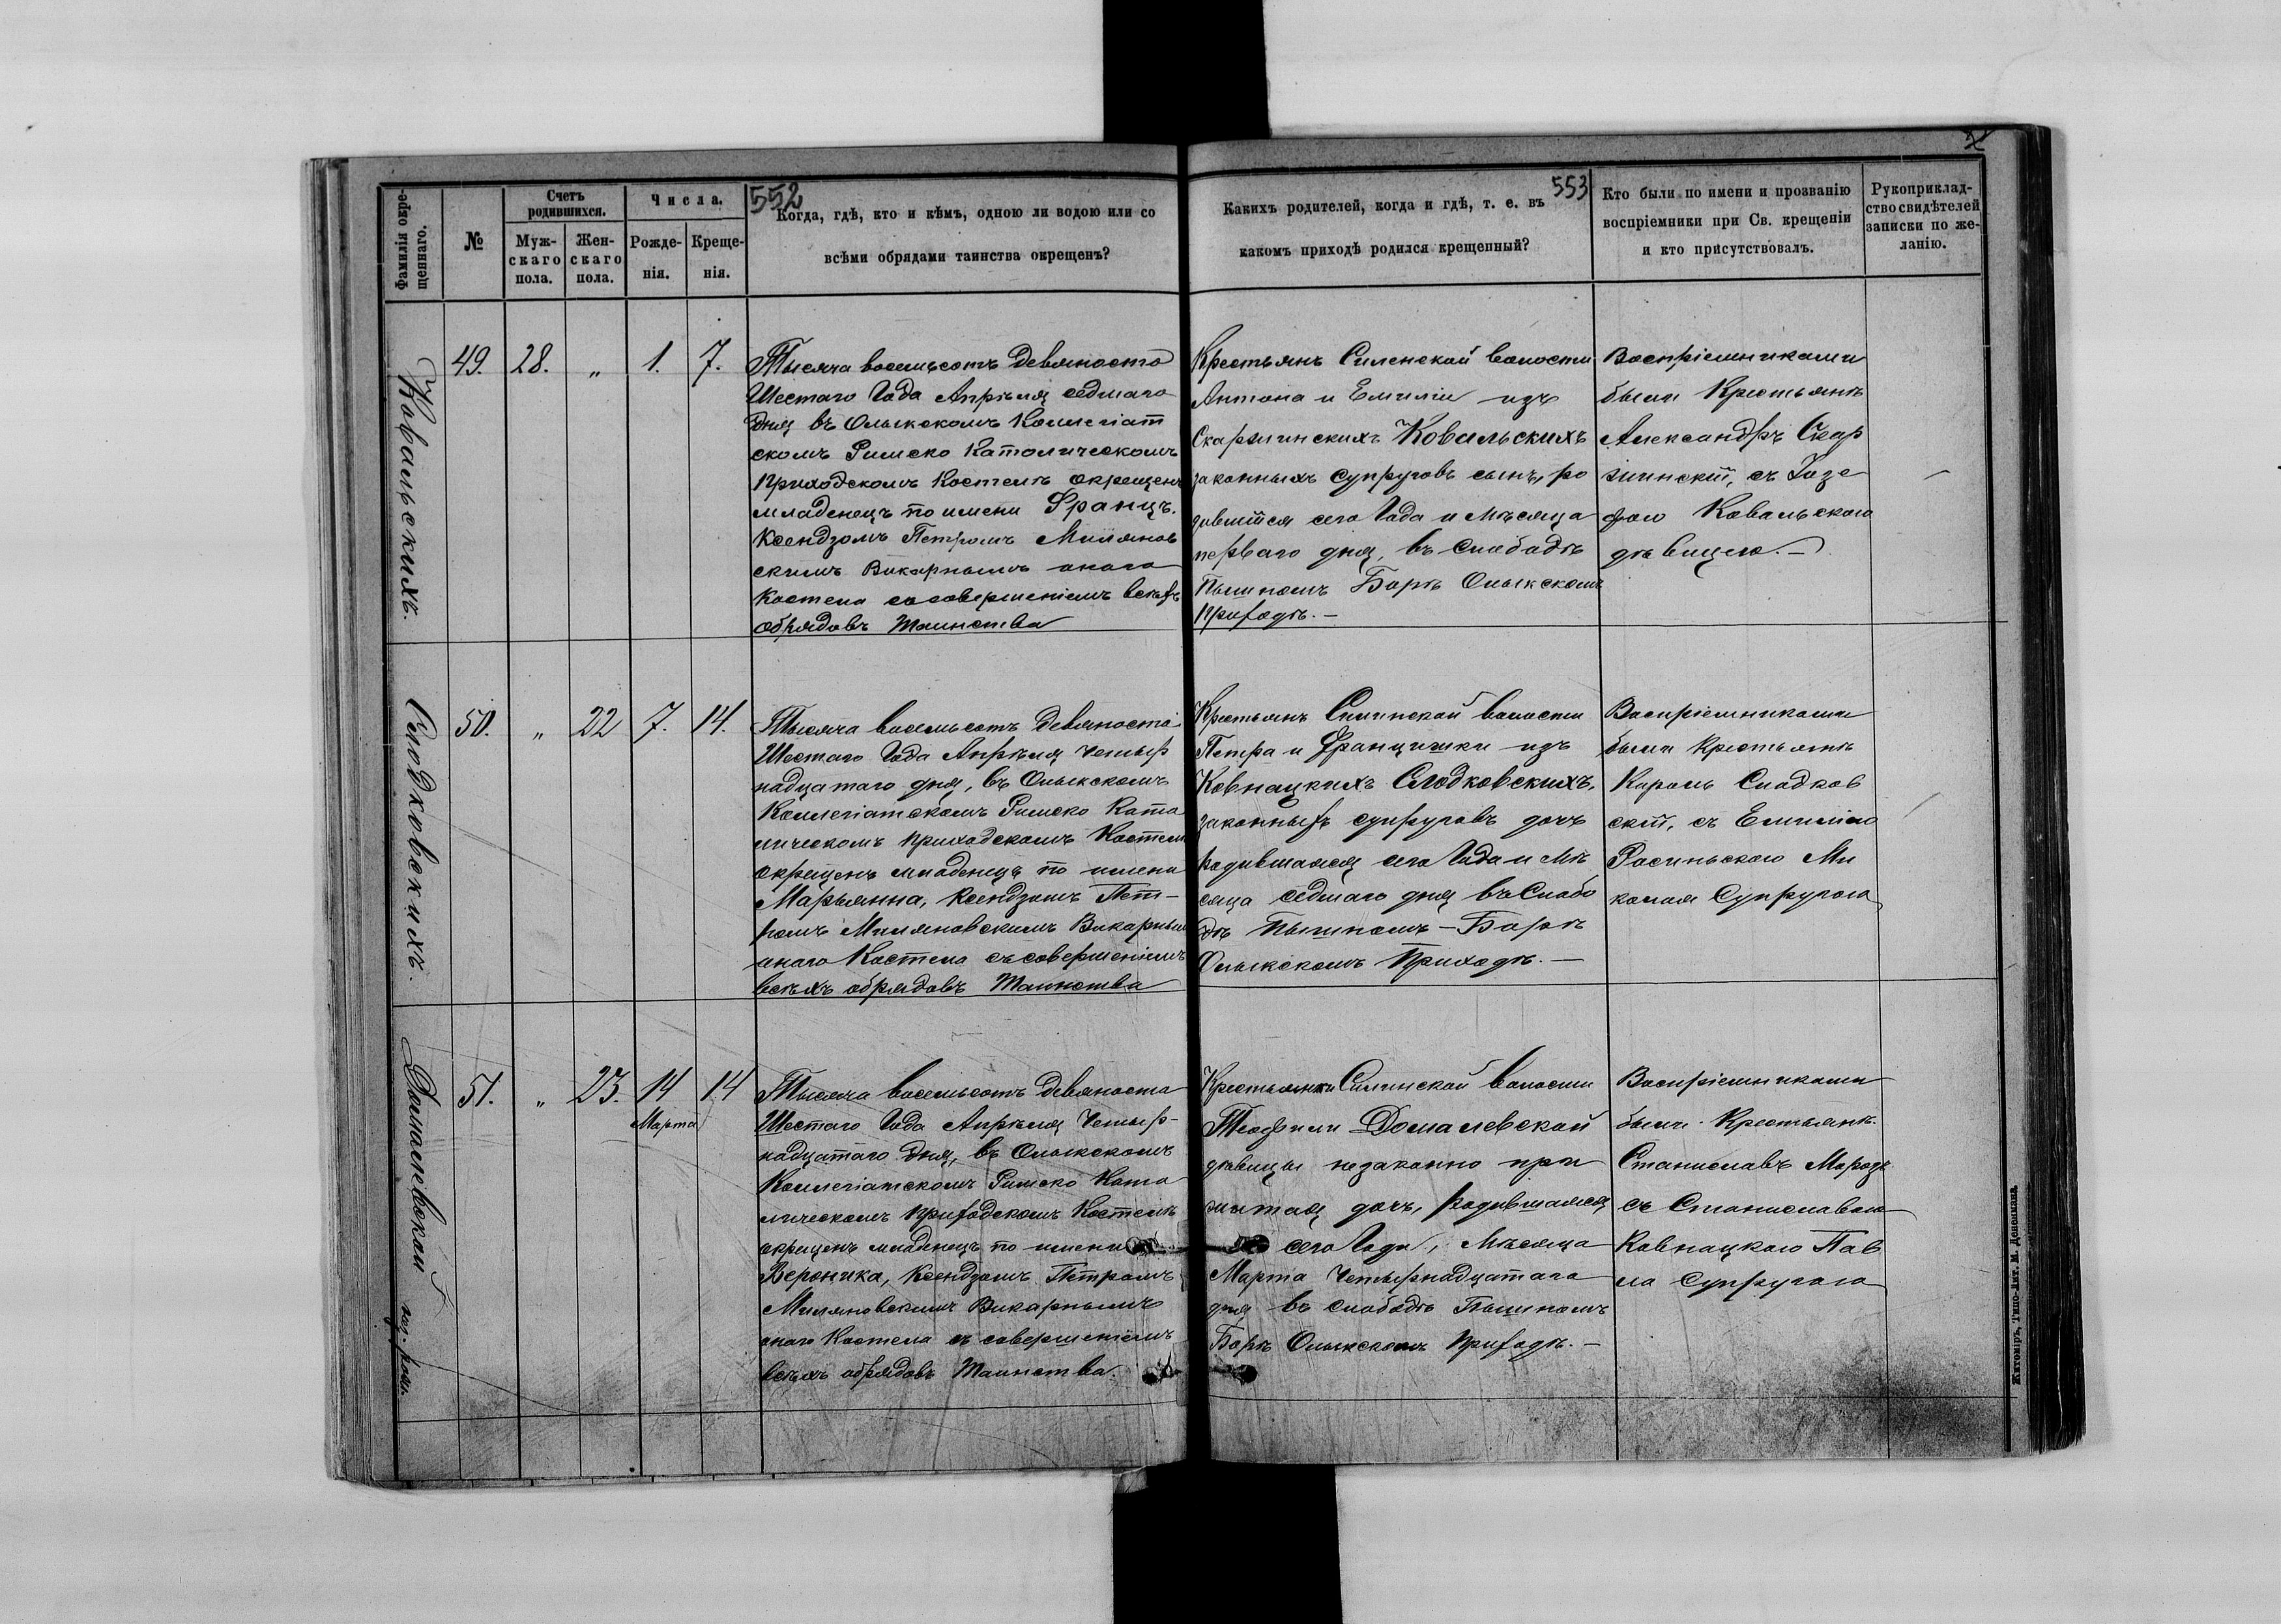 552
553
Фамилія окре-
щеннаго.
№
Счетъ
родившихся.
Муж-
скаго
пола.
Жен-
скаго
пола.
Числа.
Рожде-
нія.
Креще-
нія.
Когда, гдѣ, кто и кѣмъ, одною ли водою или со
всѣми обрядами таинства окрещенъ?
Какихъ родителей, когда и гдѣ, т. е. въ
какомъ приходѣ родился крещенный?
Кто были по имени и прозванію
воспріемники при Св. крещеніи
и кто присутствовалъ.
Рукоприклад-
ство свидѣтелей
записки по же-
ланію.
Ковальскихъ.
49.
28.
„
1.
7.
Тысяча восемьсотъ девяносто
Шестаго Года Апрѣля седмаго
дня въ Олыкскомъ Коллегіат
скомъ Римско Католическомъ
Приходскомъ Костелѣ окрещенъ
младенецъ по имени Францъ.
Ксендзомъ Петромъ Миляновъ
скимъ Викарнымъ онаго
Костела со совершеніемъ всѣхъ
обрядовъ Таинства
Крестьянъ Силенской волости
Антона и Емиліи изъ
Скаржинскихъ Ковальскихъ
законныхъ супруговъ сынъ, ро
дившійся сего Года и мѣсяца
перваго дня, въ Слободѣ
Пышномъ Борѣ Олыкскомъ
Приходѣ.—
Воспріемниками
были Крестьянѣ
Александръ Скар
жинскій, съ Юзе
фою Ковальскою
дѣвицею.—
Слодковскихъ.
50.
„
22
7.
14.
Тысяча восемьсотъ девяноста
Шестаго Года Апрѣля четыр
надцатаго дня, въ Олыкскомъ
Коллегіатскомъ Римско Като
лическомъ Приходскомъ Костелѣ
окрещенъ младенецъ по имени
Марьянна, Ксендзомъ Пет-
ромъ Миляновскимъ Викарным
онаго Костела съ совершеніемъ
всѣхъ обрядовъ Таинства
Крестьянъ Силинской волости
Петра и Францишки изъ
Ковнацкихъ Слодковскихъ,
законныхъ супруговъ дочь
родившаяся сего Года и мѣ
сяца седмаго дня въ Слобо
дѣ Пышномъ-Борѣ
Олыкскомъ Приходѣ.—
Воспріемниками
были Крестьянѣ
Кароль Слодков
скій, съ Емиліею
Росиньскою Ми
колая Супругою
Домалевской
51.
„
23.
14
Марта
14
Тысяча восемьсотъ девяноста
Шестаго Года Апрѣля Четыр-
надцатаго дня, въ Олыкскомъ
Коллегіатскомъ Римско Като
лическомъ Приходскомъ Костелѣ
окрещенъ младенецъ по имени
Вероника, Ксендзомъ Петромъ
Миляновскимъ Викарнымъ
онаго Костела съ совершеніемъ
всѣхъ обрядовъ Таинства.
Крестьянки Силинской волости
Теофили Домалевской
дѣвицы незаконно при
житая дочь, родившаяся
сего Года, мѣсяца
Марта Четырнадцатаго
дня въ слободѣ Пышномъ
Борѣ Олыкскомъ Приходѣ.—
Воспріемниками
были Крестьянѣ.
Станиславъ Морозъ
съ Станиславою
Ковнацкою Пав
ла супругою
Житоміръ, Типо-Лит. М. Дененмана.